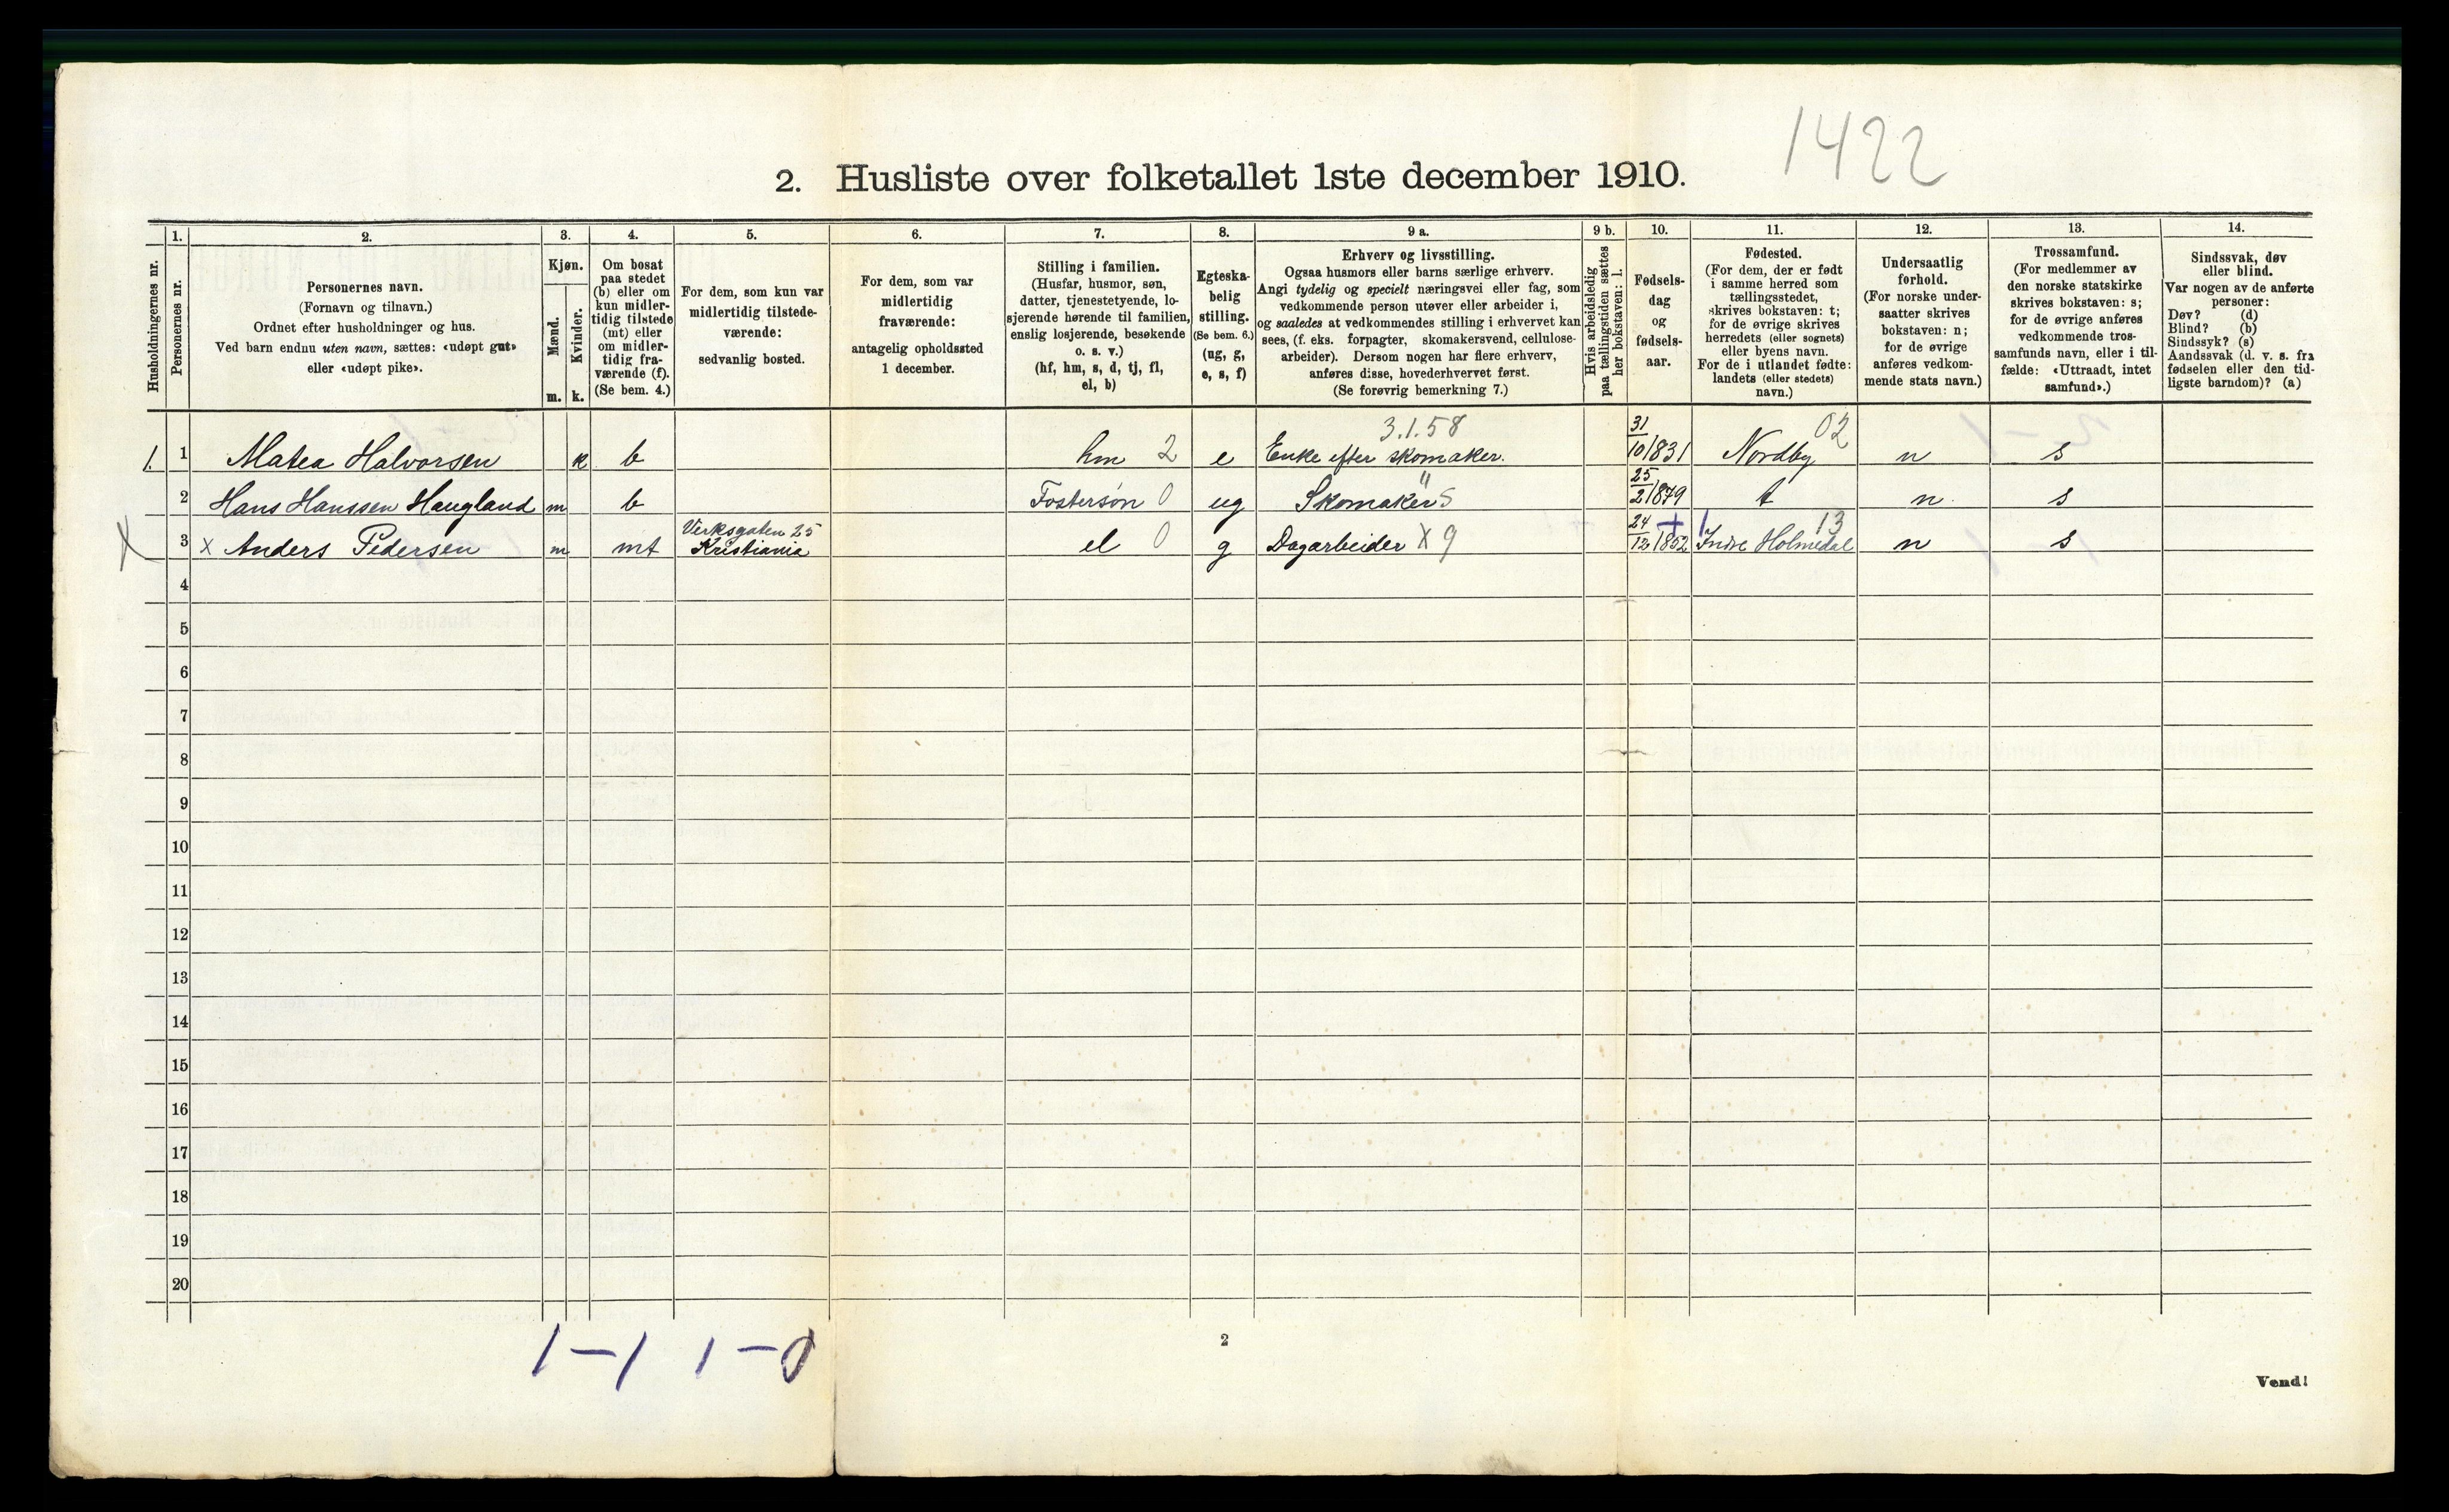 1422
2. Husliste over folketallet 1ste december 1910.
Husholdningernes nr.
1.
Personernes nr.
2.
Personernes navn.
(Fornavn og tilnavn.)
Ordnet efter husholdninger og hus.
Ved barn endnu uten navn, sættes: «udøpt gut»
eller «udøpt pike».
3.
Kjøn.
Mænd.
Kvinder.
m. k.
4.
Om bosat
paa stedet
(b) eller om
kun midler-
tidig tilstede
(mt) eller
om midler-
tidig fra-
værende (f).
(Se bem. 4.)
5.
For dem, som kun var
midlertidig tilstede-
værende:
sedvanlig bosted.
6.
For dem, som var
midlertidig
fraværende:
antagelig opholdssted
1 december.
7.
Stilling i familien.
(Husfar, husmor, søn,
datter, tjenestetyende, lo-
sjerende hørende til familien,
enslig losjerende, besøkende
o. s. v.)
(hf, hm, s, d, tj, fl,
el, b)
8.
Egteska-
belig
stilling.
(Se bem. 6.)
(ug, g,
e, s, f)
9 a.
Erhverv og livsstilling.
Ogsaa husmors eller barns særlige erhverv.
Angi tydelig og specielt næringsvei eller fag, som
vedkommende person utøver eller arbeider i,
og saaledes at vedkommendes stilling i erhvervet kan
sees, (f. eks. forpagter, skomakersvend, cellulose-
arbeider). Dersom nogen har flere erhverv,
anføres disse, hovederhvervet først.
(Se forøvrig bemerkning 7.)
9 b.
Hvis arbeidsledig
paa tællingstiden sættes
her bokstaven: l.
10.
Fødsels-
dag
og
fødsels-
aar.
11.
Fødested.
(For dem, der er født
i samme herred som
tællingsstedet,
skrives bokstaven: t;
for de øvrige skrives
herredets (eller sognets)
eller byens navn.
For de i utlandet fødte:
landets (eller stedets)
navn.)
12.
Undersaatlig
forhold.
(For norske under-
saatter skrives
bokstaven: n;
for de øvrige
anføres vedkom-
mende stats navn.)
13.
Trossamfund.
(For medlemmer av
den norske statskirke
skrives bokstaven: s;
for de øvrige anføres
vedkommende tros-
samfunds navn, eller i til-
fælde: «Uttraadt, intet
samfund».)
14.
Sindssvak, døv
eller blind.
Var nogen av de anførte
personer:
Døv? (d)
Blind? (b)
Sindssyk? (s)
Aandssvak (d. v. s. fra
fødselen eller den tid-
ligste barndom)? (a)
1. 1 Matea Halvorsen k b hm 2 e 3.1.58 Enke efter skomaker. 31/10 1831 Nordby 02 n s
2 Hans Hanssen Haugland m b Fostersøn 0 ug Skomaker " 5 25/2 1879 t n. s
X 3 x Anders Pedersen m mt Verksgaten 25 Kristiania el 0 g Dagarbeider X 9 24/12 1852 + Indre Holmedal 13 n s
4
5
6
7
8
9
10
11
12
13
14
15
16
17
18
19
20
1-1 1-0
2
Vend!